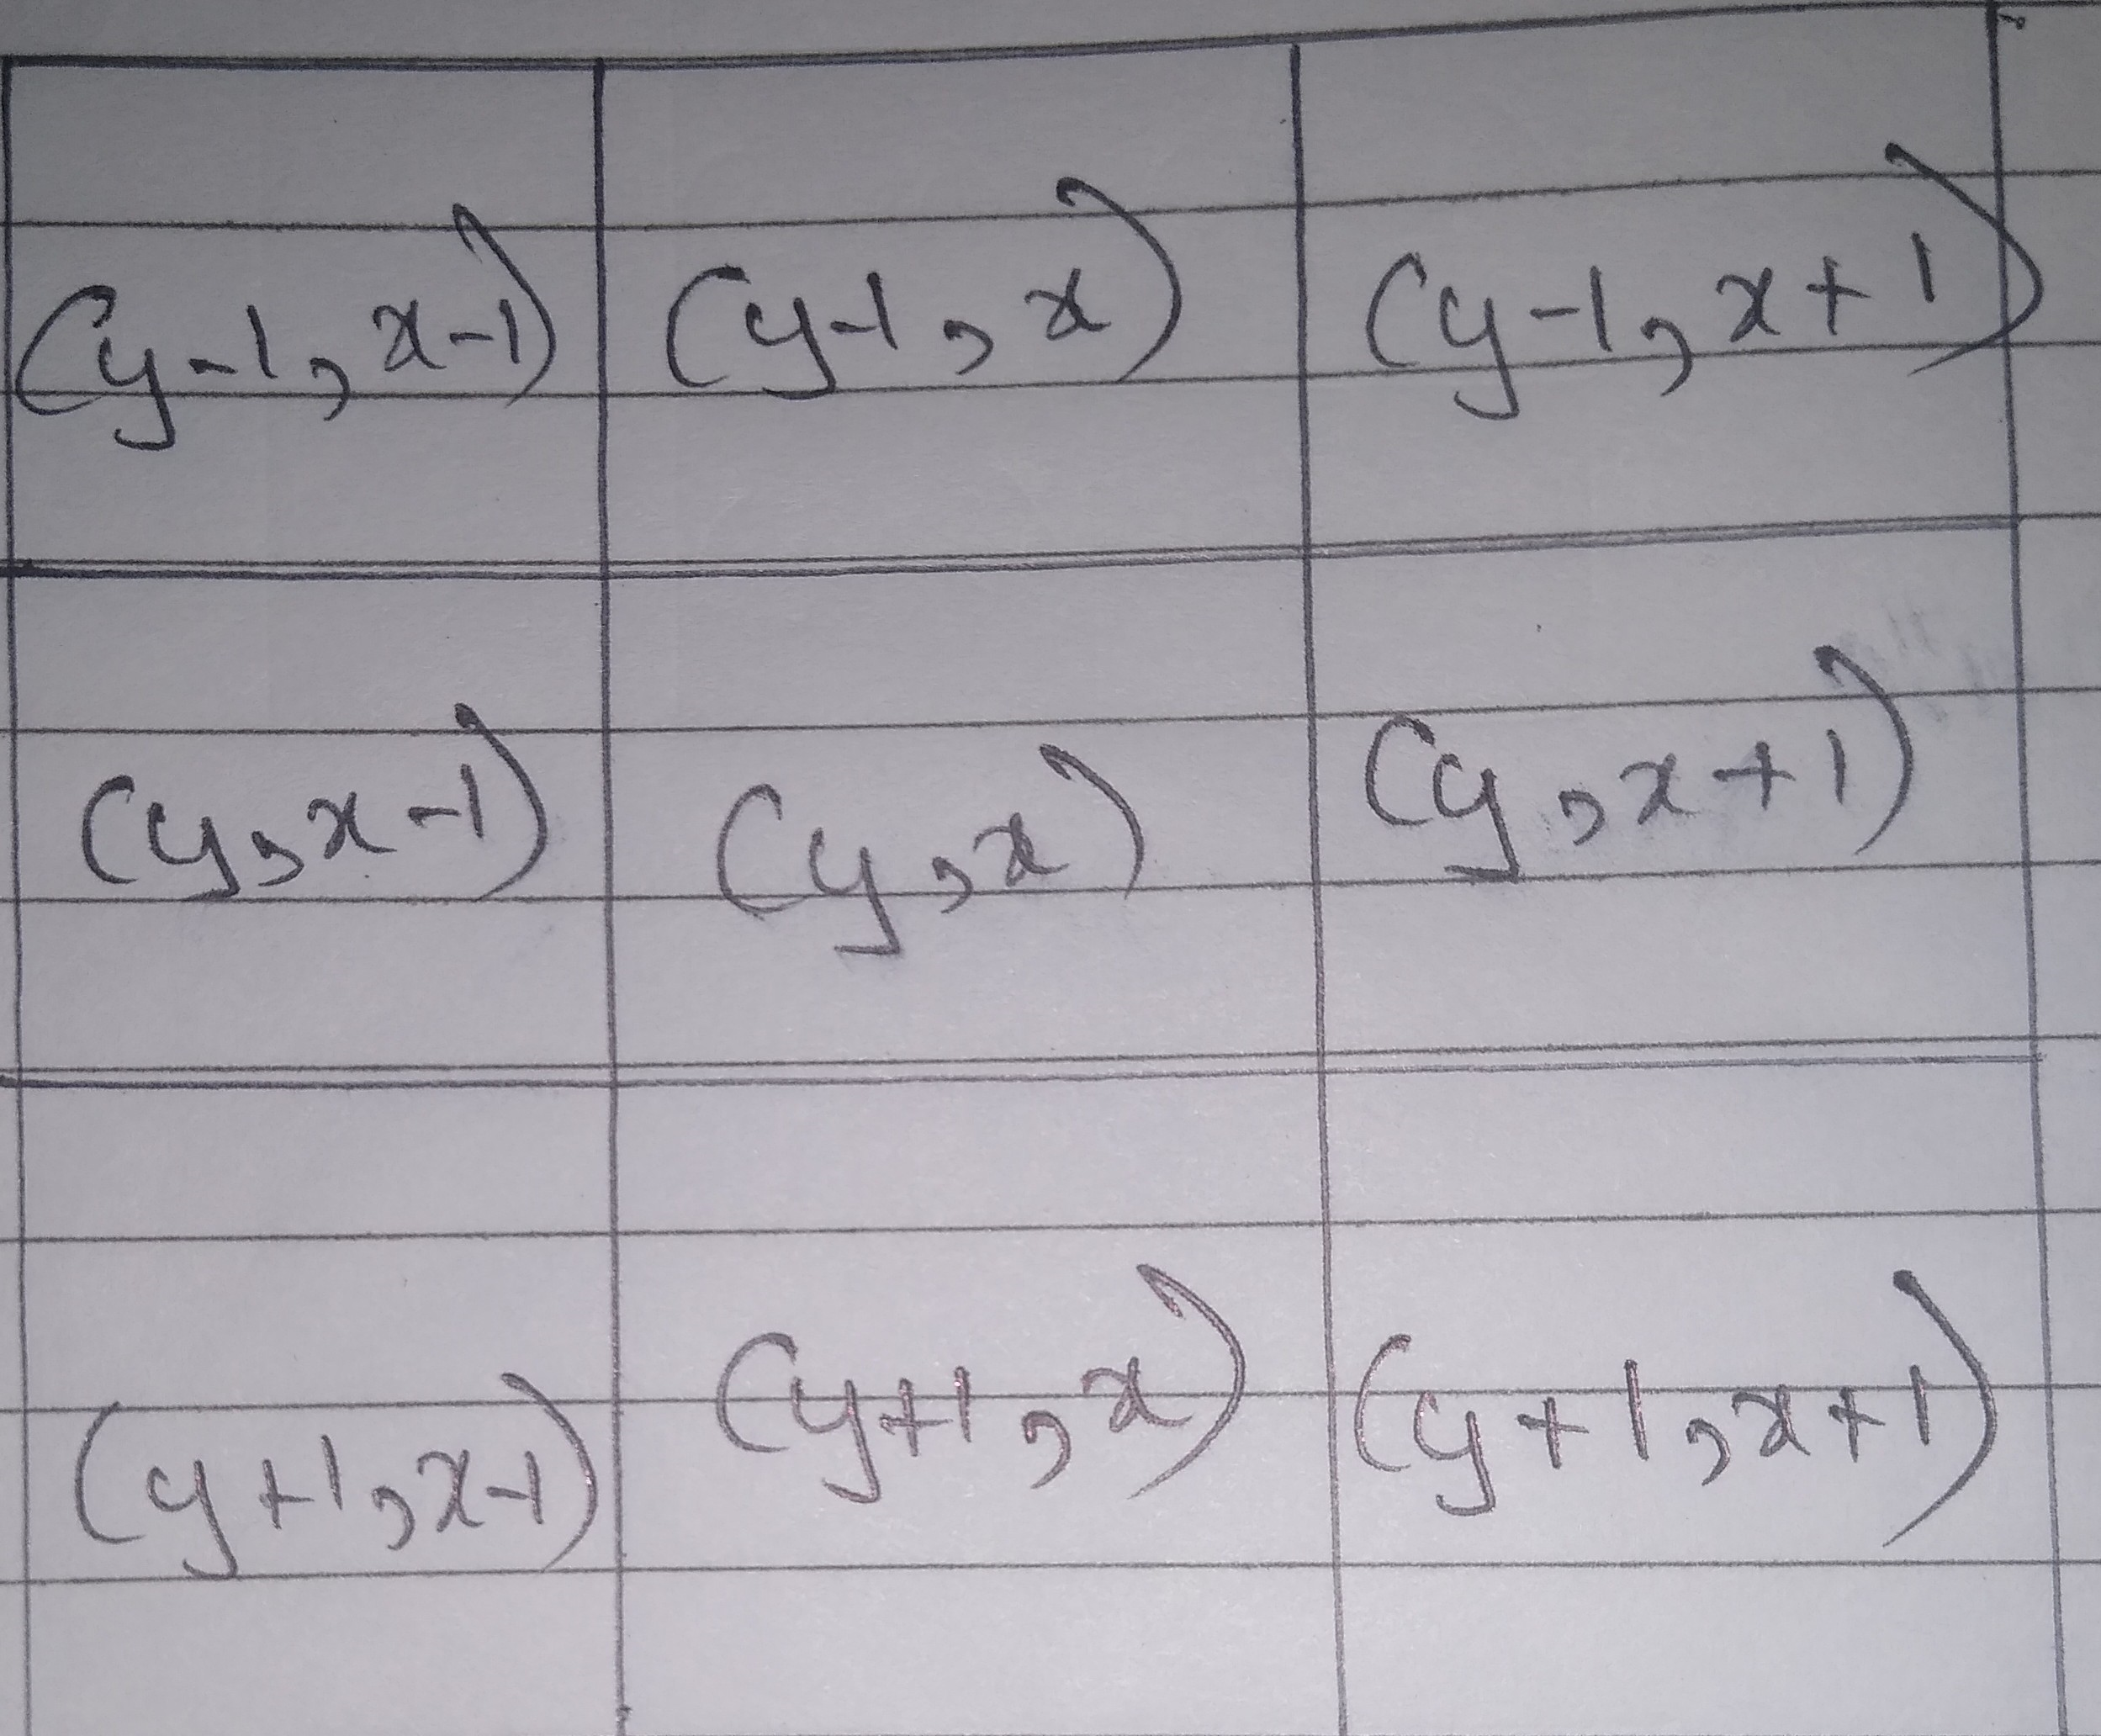 (y-1, x-1) (y-1, x) (y-1, x+1)
(y, x-1) (y, x) (y, x+1)
(y+1, x-1) (y+1, x) (y+1, x+1)